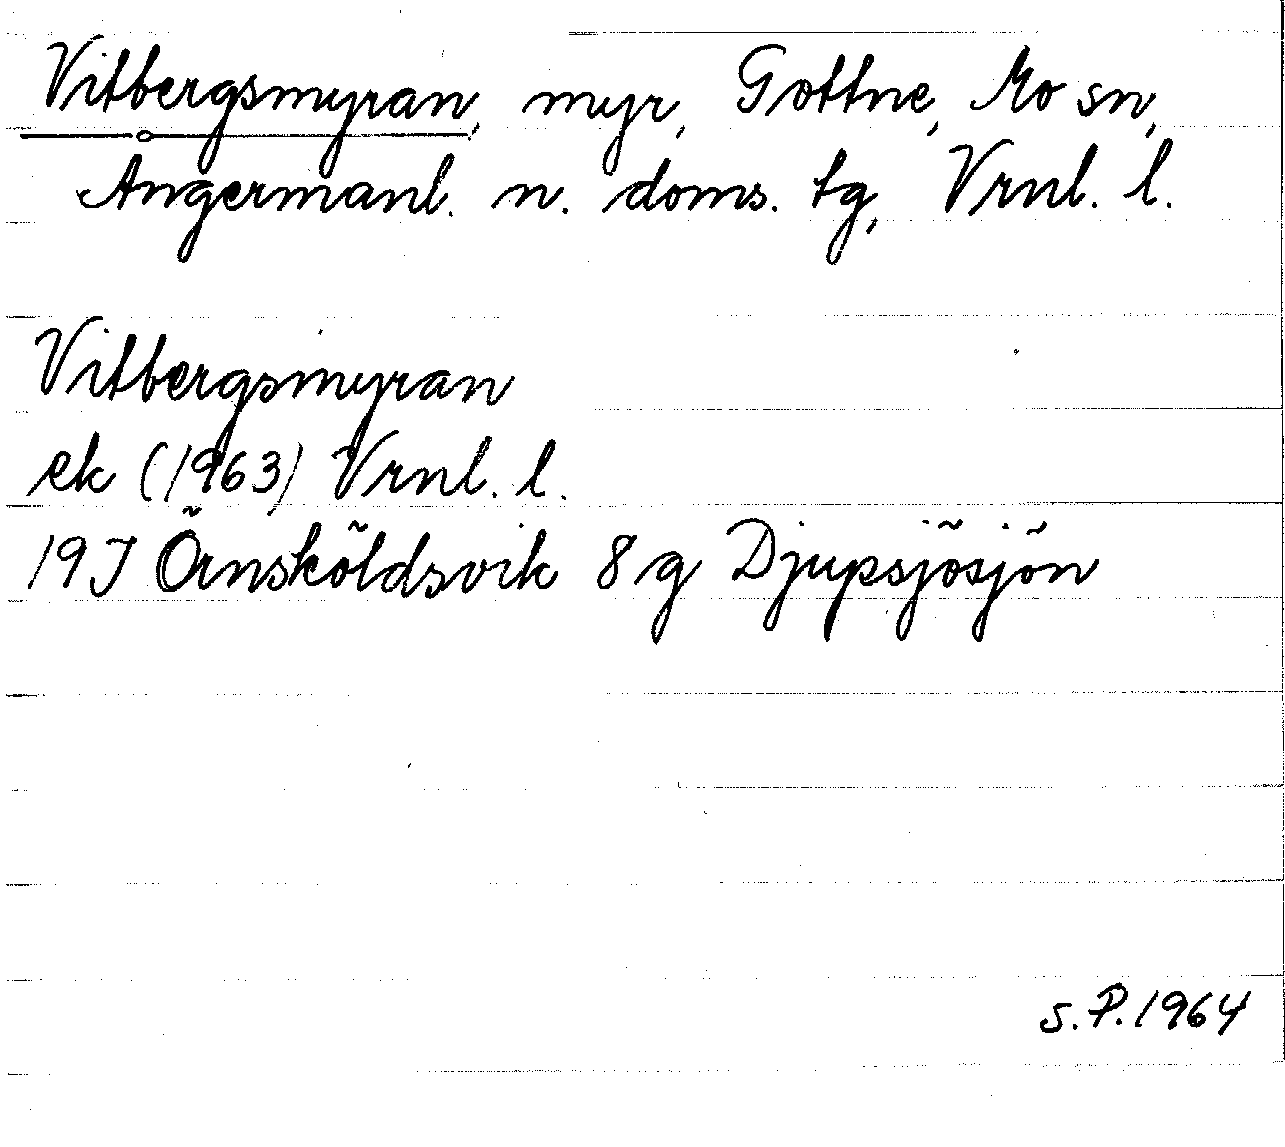 Vitbergsmyran, myr, Gottne, Mo sn,
Ångermanl. n. doms. tg, Vrnl. l.
Vitbergsmyran
ek (1963) Vrnl. l.
19J Örnsköldsvik 8 g Djupsjösjön
S.P. 1964